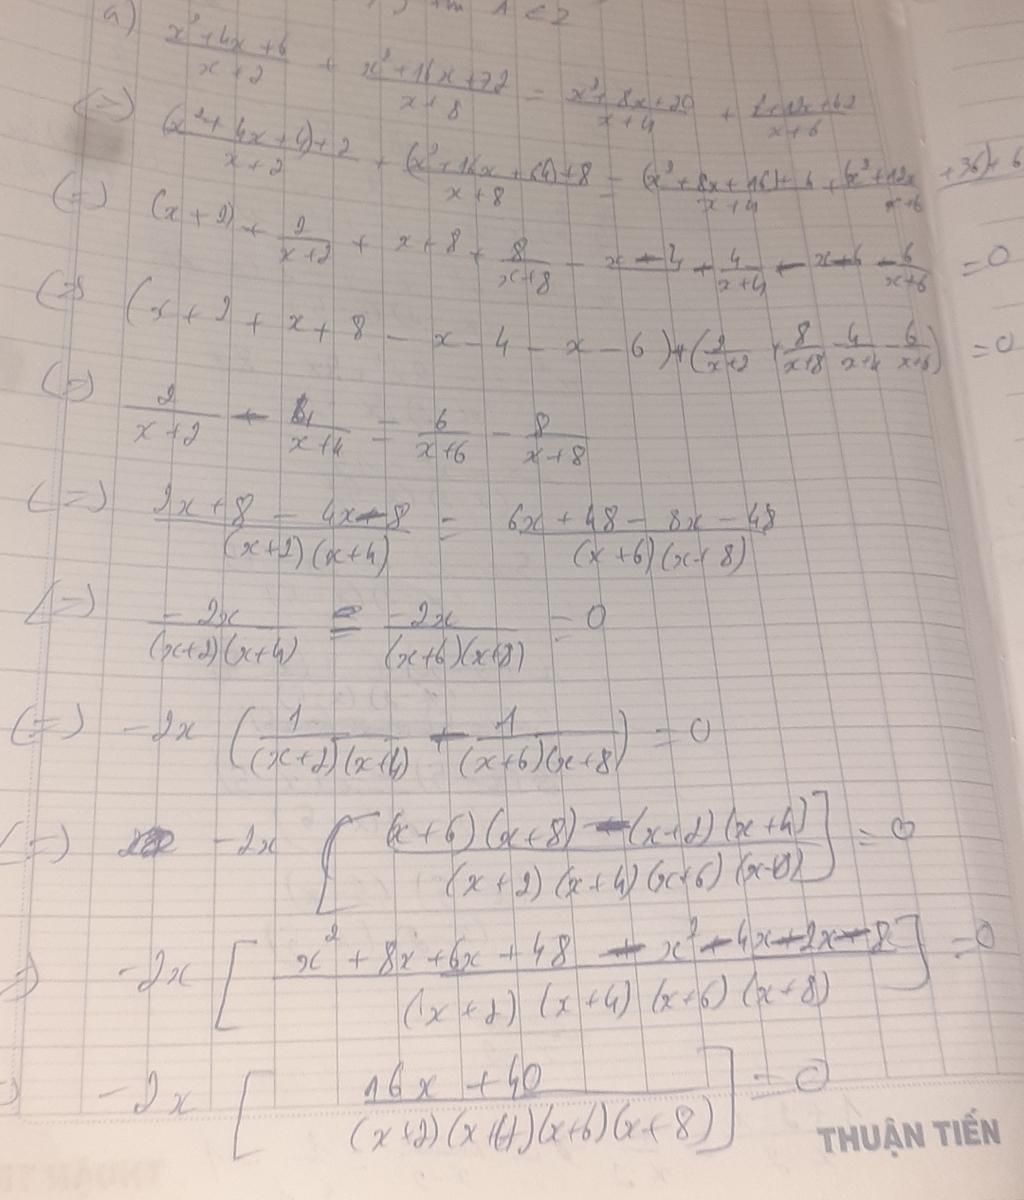 A < 2
a) x²+4x+6/x+2 + x²+16x+72/x+8 = x²+8x+20/x+4 + x²+12x+42/x+6
(=) (x²+4x+4)+2/x+2 + (x²+16x+64)+8/x+8 = (x²+8x+16)+4/x+4 + (x²+12x+36)+6/x+6
(=) (x+2) + 2/x+2 + x+8 + 8/x+8 - x - 4 - 4/x+4 - x - 6 - 6/x+6 = 0
(=) (x+2+x+8-x-4-x-6)+(2/x+2 + 8/x+8 - 4/x+4 - 6/x+6) = 0
(=) 2/x+2 - 4/x+4 = 6/x+6 - 8/x+8
(=) 2x+8-4x-8/(x+2)(x+4) = 6x+48-8x-48/(x+6)(x+8)
(=) -2x/(x+2)(x+4) = -2x/(x+6)(x+8) = 0
(=) -2x (1/(x+2)(x+4) - 1/(x+6)(x+8)) = 0
(=) -2x [(x+6)(x+8)-(x+2)(x+4)/(x+2)(x+4)(x+6)(x+8)] = 0
=) -2x [x²+8x+6x+48-x²-4x-2x-8/(x+2)(x+4)(x+6)(x+8)] = 0
-2x [16x+40/(x+2)(x+4)(x+6)(x+8)] = 0
THUẬN TIẾN